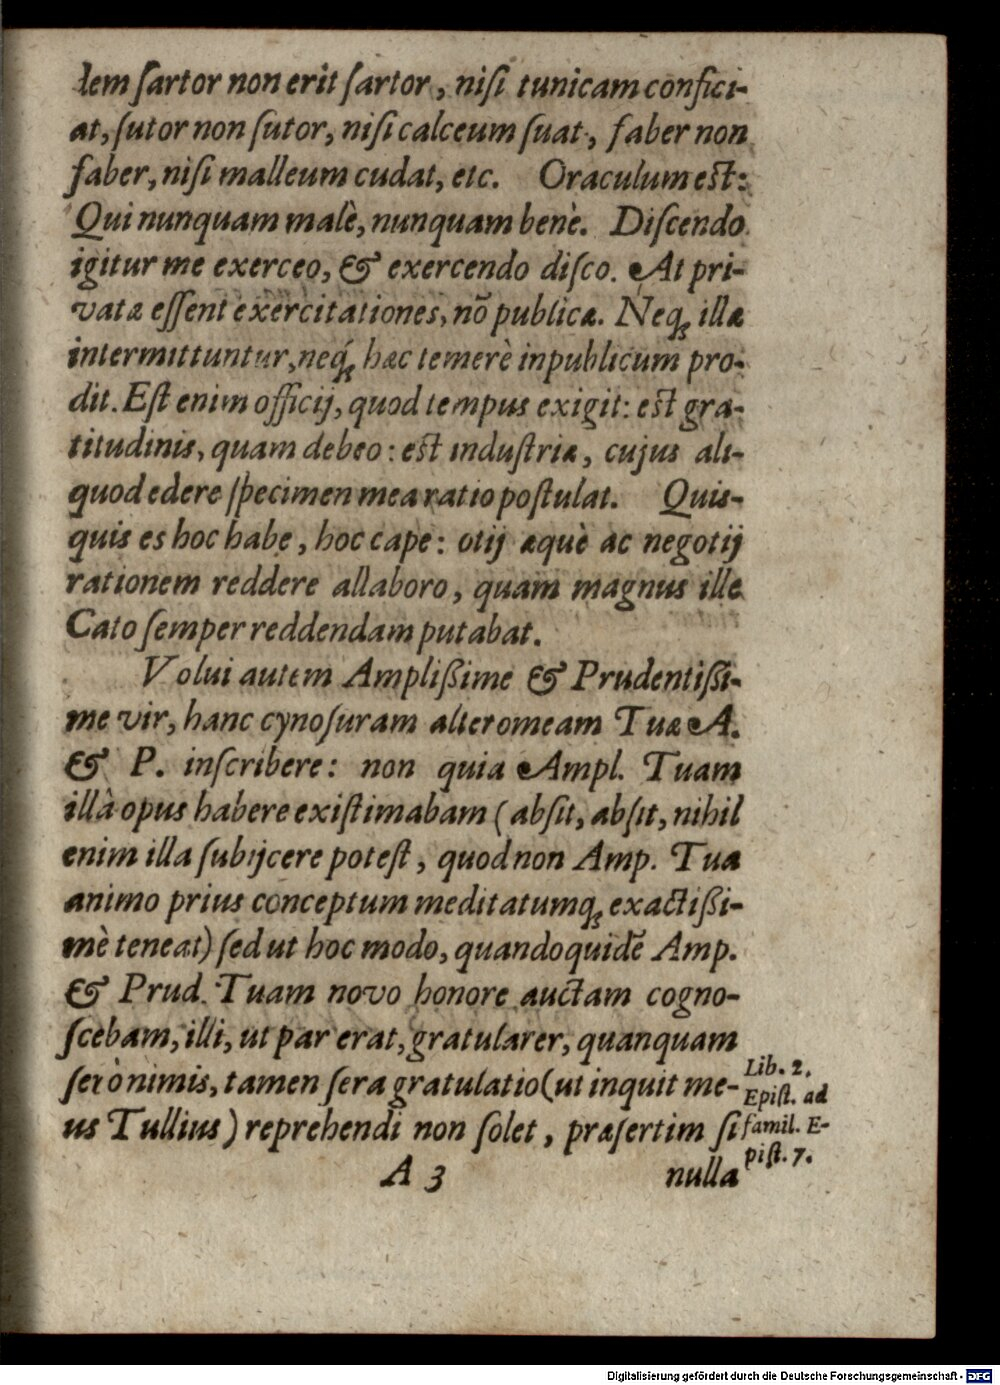 dem ſartor non erit ſartor, niſi tunicam confici-
at, ſutor non ſutor, niſi calceum ſuat, faber non
faber, niſi malleum cudat, etc. Oraculum eſt:
Qui nunquam malè, nunquam benè. Diſcendo
igitur me exerceo, & exercendo diſco. At pri-
vatæ eſſent exercitationes, nõ publicæ. Neqꝫ illæ
intermittuntur, neqꝫ́ hæc temerè in publicum pro-
dit. Eſt enim officij, quod tempus exigit: eſt gra-
titudinis, quam debeo: eſt induſtriæ, cujus ali-
quod edere ſpecimen mea ratio poſtulat. Quis-
quis es hoc habe, hoc cape: otij æquè ac negotij
rationem reddere allaboro, quam magnus ille
Cato ſemper reddendam putabat.
Volui autem Ampliſſime & Prudentiſſi-
me vir, hanc cynoſuram alteromeam Tuæ A.
& P. inſcribere: non quia Ampl. Tuam
illà opus habere exiſtimabam (abſit, abſit, nihil
enim illa ſubijcere poteſt, quod non Amp. Tua
animo prius conceptum meditatumqꝫ exactiſſi-
mè teneat) ſed ut hoc modo, quandoquidẽ Amp.
& Prud. Tuam novo honore auctam cogno-
ſcebam, illi, ut par erat, gratularer, quanquam
ſerò nimis, tamen ſera gratulatio (ut inquit me-
us Tullius) reprehendi non ſolet, præſertim ſi
Lib. 2.
Epiſt. ad
famil. E-
piſt. 7.
A 3 nulla
Digitalisierung gefördert durch die Deutsche Forschungsgemeinschaft - DFG